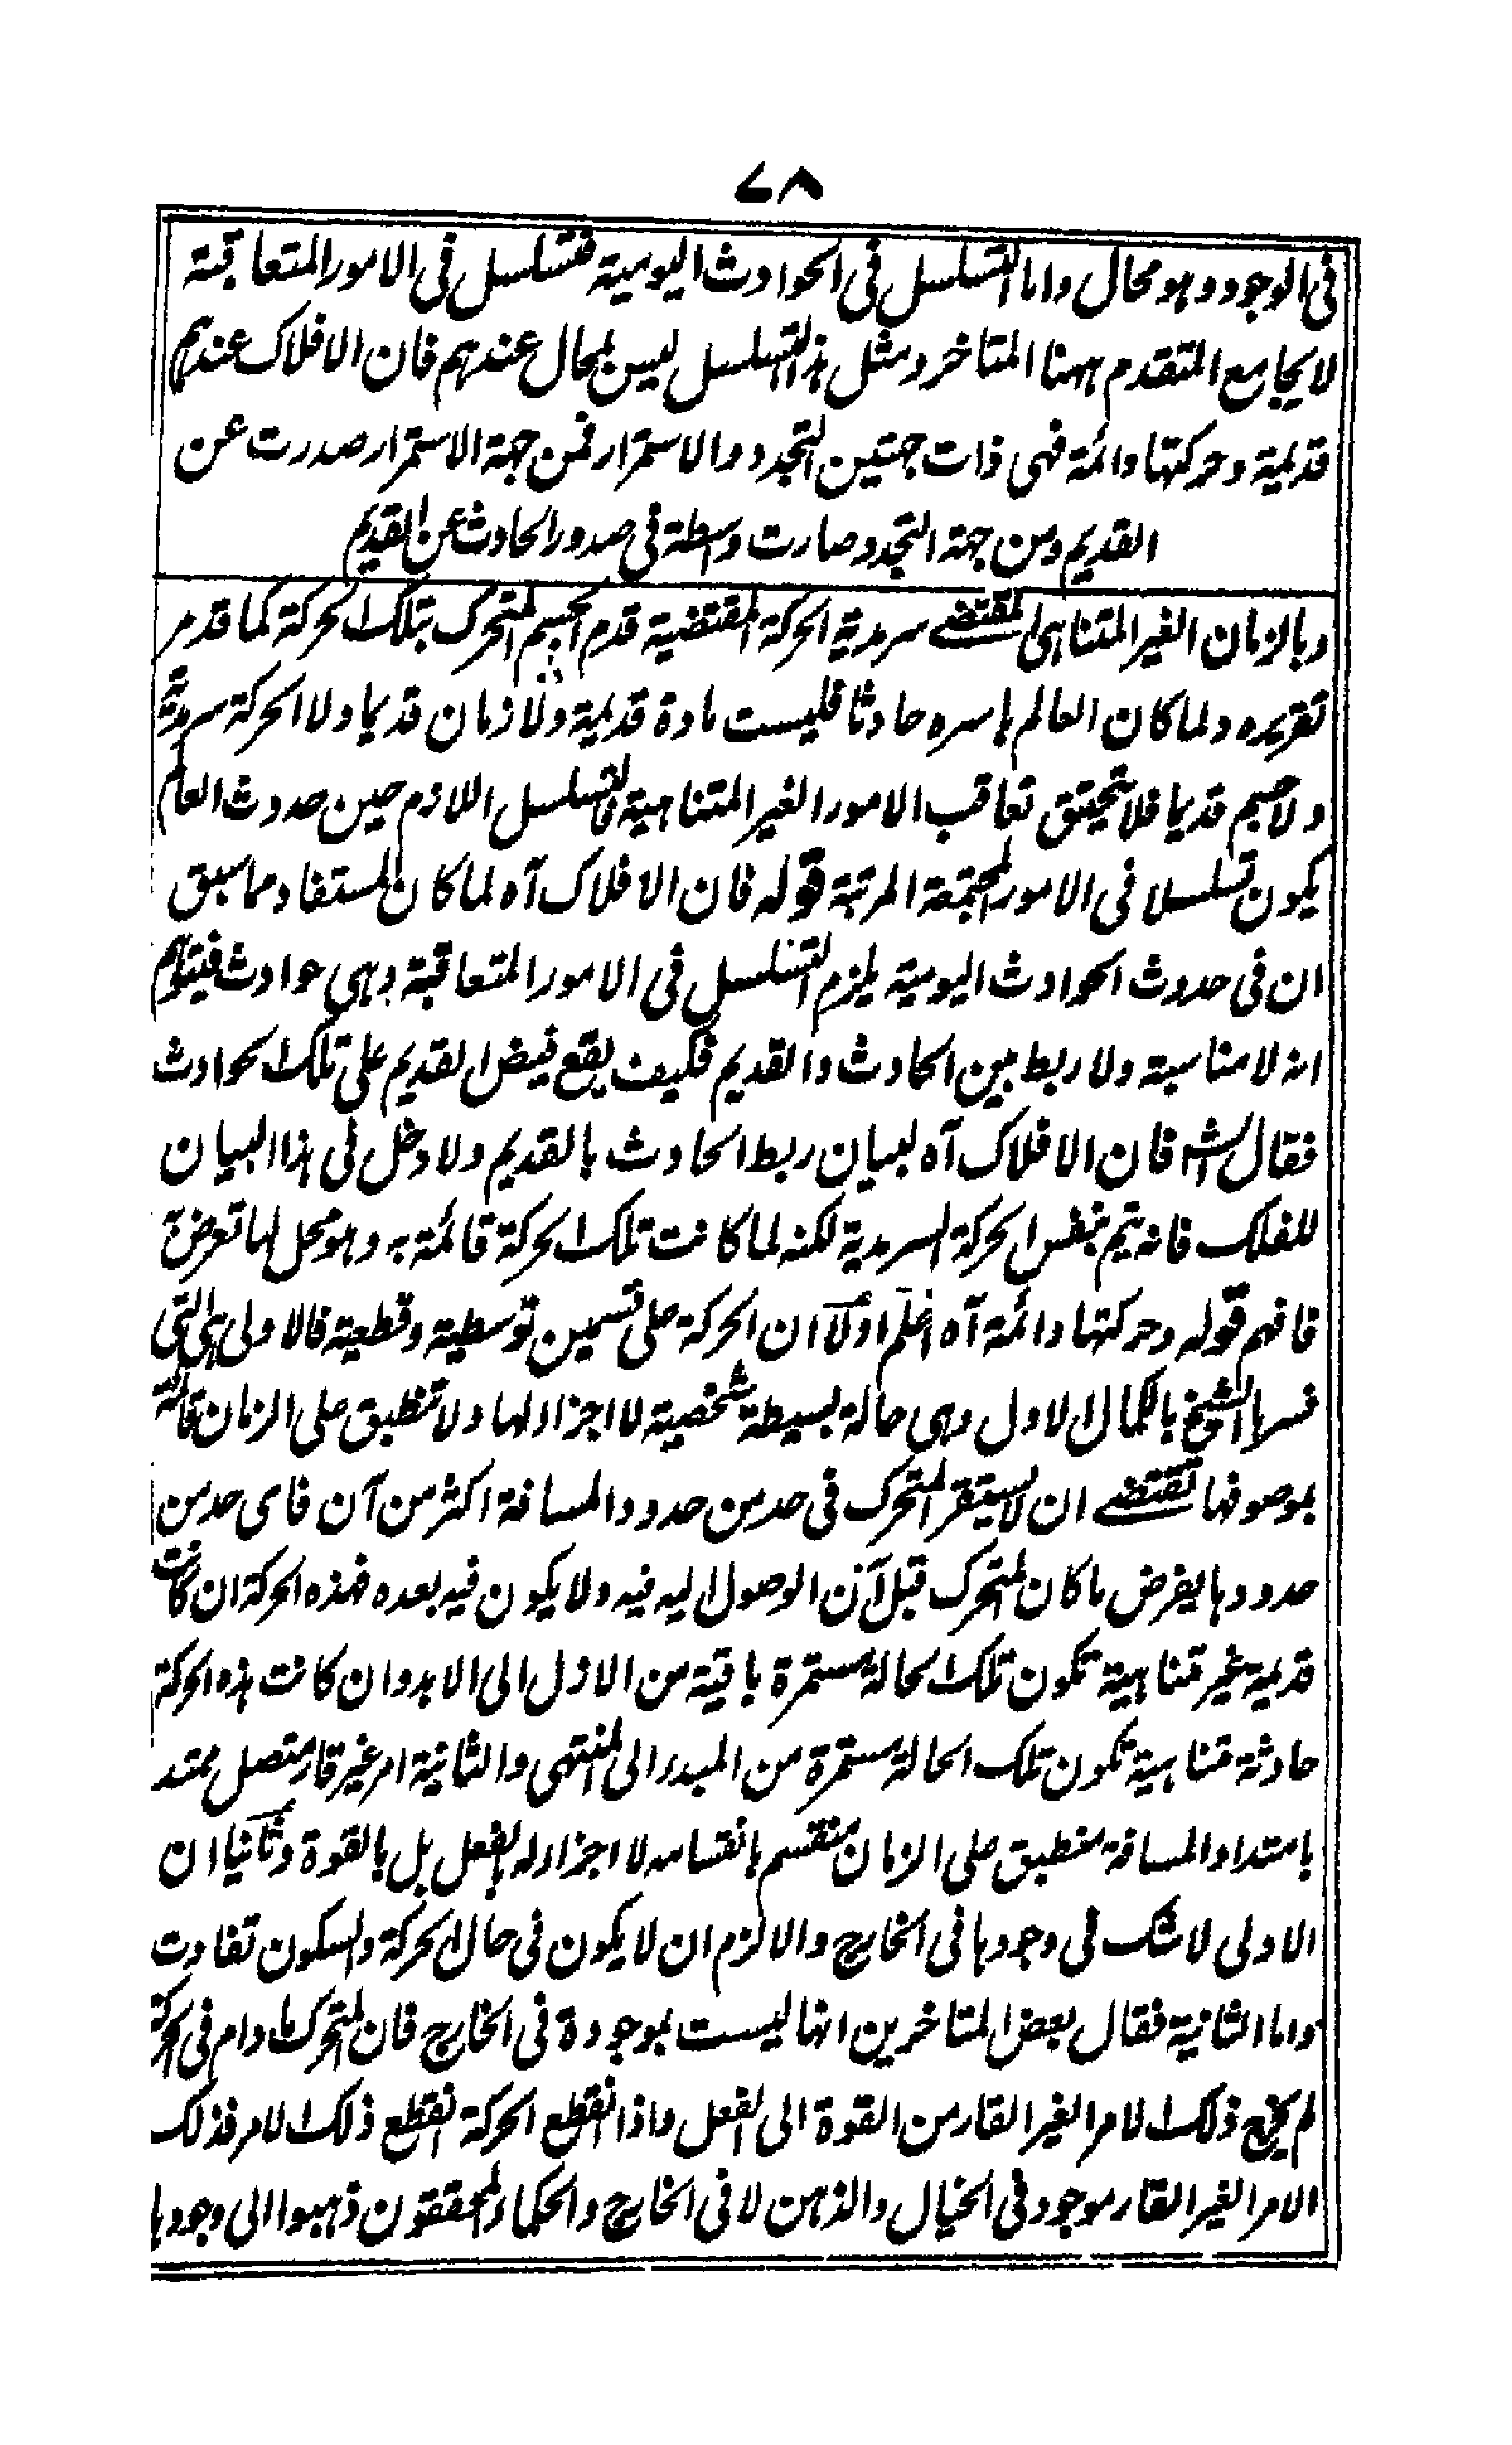 ٧٨
فى الوجود وهو محال واما التسلسل فى الحوادث اليومية فتسلسل فى الامور المتعاقبة
لا يجامع المتقدم ههنا المتاخر ومثل هذا التسلسل ليس بمحال عندهم فان الافلاك عندهم
قديمة وحركتها دائمة فهى ذات جهتين التجدد والاستمرار فمن جهة الاستمرار صدرت عن
القديم ومن جهة التجدد صارت واسطة فى صدور الحادث عن القديم
وبالزمان الغير المتناهى المقتضے سرمدية الحركة المقتضية قدم الجسم المتحرك بتلك الحركة كما قد مر
تقريره ولما كان العالم باسره حادثا فليست مادة قديمة ولا زمان قديما ولا الحركة سرمدية
ولا جسم قديما فلا يتحقق تعاقب الامور الغير المتناهية فالتسلسل اللازم حين حدوث العالم
يكون تسلسلا فى الامور المجتمعة المرتبة قوله فان الافلاك آه لما كان المستفاد مما سبق
ان فى حدوث الحوادث اليومية يلزم التسلسل فى الامور المتعاقبة وهى حوادث فيتوهم
انه لا مناسبة ولا ربط بين الحادث والقديم فكيف يقع فيض القديم على تلك الحوادث
فقال الشه فان الافلاك آه لبيان ربط الحادث بالقديم ولا دخل فى هذا البيان
للفلك فانه يتم بنفس الحركة السرمدية لكنه لما كانت تلك الحركة قائمة به وهو محل لها تعرض به
فافهم قوله وحركتها دائمة آه اعلم اولا ان الحركة على قسمين توسطية وقطعية فالاولى هى التى
فسرها الشيخ بالكمال الاول وهى حالة بسيطة شخصية لا اجزاء لها ولا تنطبق على الزمان قائمة
بموصوفها تقتضے ان لا يستقر المتحرك فى حد من حدود المسافة اكثر من آن فاى حد من
حدودها يفرض ما كان المتحرك قبل آن الوصول اليه فيه ولا يكون فيه بعده فهذه الحركة ان كانت
قديمة غير متناهية تكون تلك الحالة مستمرة باقية من الازل الى الابد وان كانت هذه الحركة
حادثة متناهية تكون تلك الحالة مستمرة من المبدء الى المنتهى والثانية امر غير قار متصل ممتد
بامتداد المسافة منطبق على الزمان منقسم بانقسامه لا اجزاء له بالفعل بل بالقوة وثانيا ان
الاولى لا شك فى وجودها فى الخارج والا لزم ان لا يكون فى حال الحركة والسكون تفاوت
واما الثانية فقال بعض المتاخرين انها ليست بموجودة فى الخارج فان المتحرك ما دام فى الحركة
لم يخرج ذلك الامر الغير القار من القوة الى الفعل واذا انقطع الحركة انقطع ذلك الامر فذلك
الامر الغير القار موجود فى الخيال والذهن لا فى الخارج والحكماء المحققون ذهبوا الى وجودها